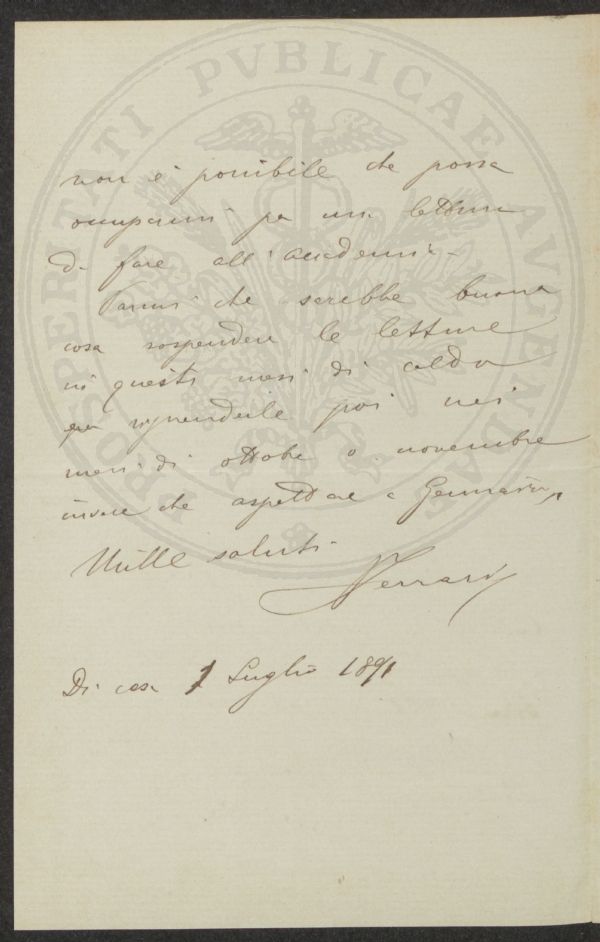 PROSPERITATI PVBLICAE AVGENDAE
non è possibile che possa
occuparmi per una lettura
da fare all'Accademia.
Parmi che sarebbe buona
cosa sospendere le letture
in questi mesi di caldo
per riprenderle poi nei
mesi di ottobre o novembre
invece che aspettare a Gennaio,
Mille saluti
Ferrari
Di casa 1 Luglio 1891